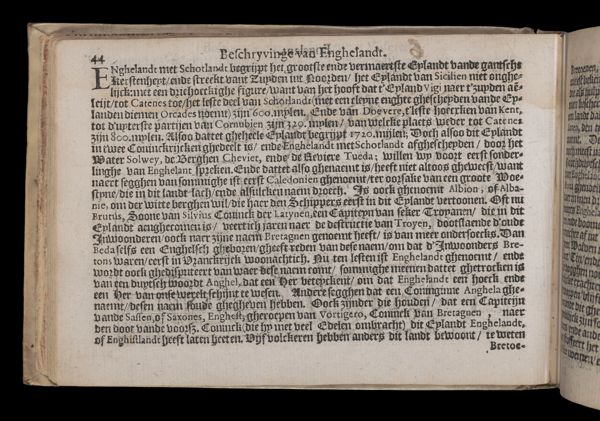 44
Beschryvinge van Enghelandt.
ENghelandt met Schotlandt begrijpt het grootste ende vermaertste Eylandt vande gantsche
Kerstenheyt/ ende streckt vant Zuyden int Noorden/ het Eylandt van Sicilien niet onghe-
lijck: met een driehoeckighe figure/ want van het hooft dat t'Eylandt Vigi naer t'zuyden aē-
leijt/ tot Catenes toe/ het leste deel van Schotlandt (met een cleyne enghte ghescheyden vande Ey-
landen diemen Orcades noemt) zijn 600. mylen/ Ende van Doevere, t'leste hoecken van Kent,
tot d'uyterste partijen van Cornubien zijn 320. mylen/ van welcke plaets weder tot Catenes
zijn 800. mylen. Alsoo dattet gheheele Eylandt begrijpt 1720. mijlen; Doch alsoo dit Eylandt
in twee Coninckrijcken ghedeelt is/ ende Enghelandt met Schotlandt afghescheyden/ door het
Water Solwey, de Berghen Cheviet, ende de Reviere Tueda; willen wy voort eerst sonder-
linghe van Enghelant spreken. Ende dattet also ghenaemt is/ heeft niet altoos gheweest/ want
naert segghen van sommighe ist eerst Caledonien ghenoemt/ ter oorsake van een groote Woe-
stijne/ die in dit landt lach/ ende alsulcken naem droech. Is oock ghenoemt Albion, of Alba-
nie, om der witte berghen wil/ die haer den Schippers eerst in dit Eylandt vertoonen. Oft nu
Brutus, Soone van Silvius Coninck der Latynen, een Capiteyn van seker Troyanen/ die in dit
Eylandt aenghecomen is/ veertich jaren naer de destructie van Troyen, dootslaende d'oude
Inwoonderen/ oock naer zijne naem Bretagnen genoemt heeft/ is van meer ondersoecks. Dan
Beda selfs een Enghelsch gheboren/ gheeft reden van dese naem/ om dat d'Inwoonders Bre-
tons waren/ eerst in Vranckrijck woonachtich. Nu ten lesten ist Enghelandt ghenoemt/ ende
wordt oock ghedisputeert van waer dese naem comt/ sommighe meenen dattet ghetrocken is
van een duytsch woordt Anghel, dat een Her beteyckent/ om dat Enghelandt een hoeck ende
een Her van onse werelt schijnt te wesen. Andere segghen dat een Coninghinne Anghela ghe-
naemt/ desen naem soude ghegheven hebben. Oock zijnder die houden/ dat een Capiteyn
vande Sassen, of Saxones, Enghest, gheroepen van Vortigero, Coninck van Bretagnen, naer
den doot vande voorsz. Coninck (die hy met veel Edelen ombracht) dit Eylandt Enghelandt,
of Enghistlandt heeft laten heeten. Vijf volckeren hebben anders dit landt bewoont/ te weten
Bretoe-